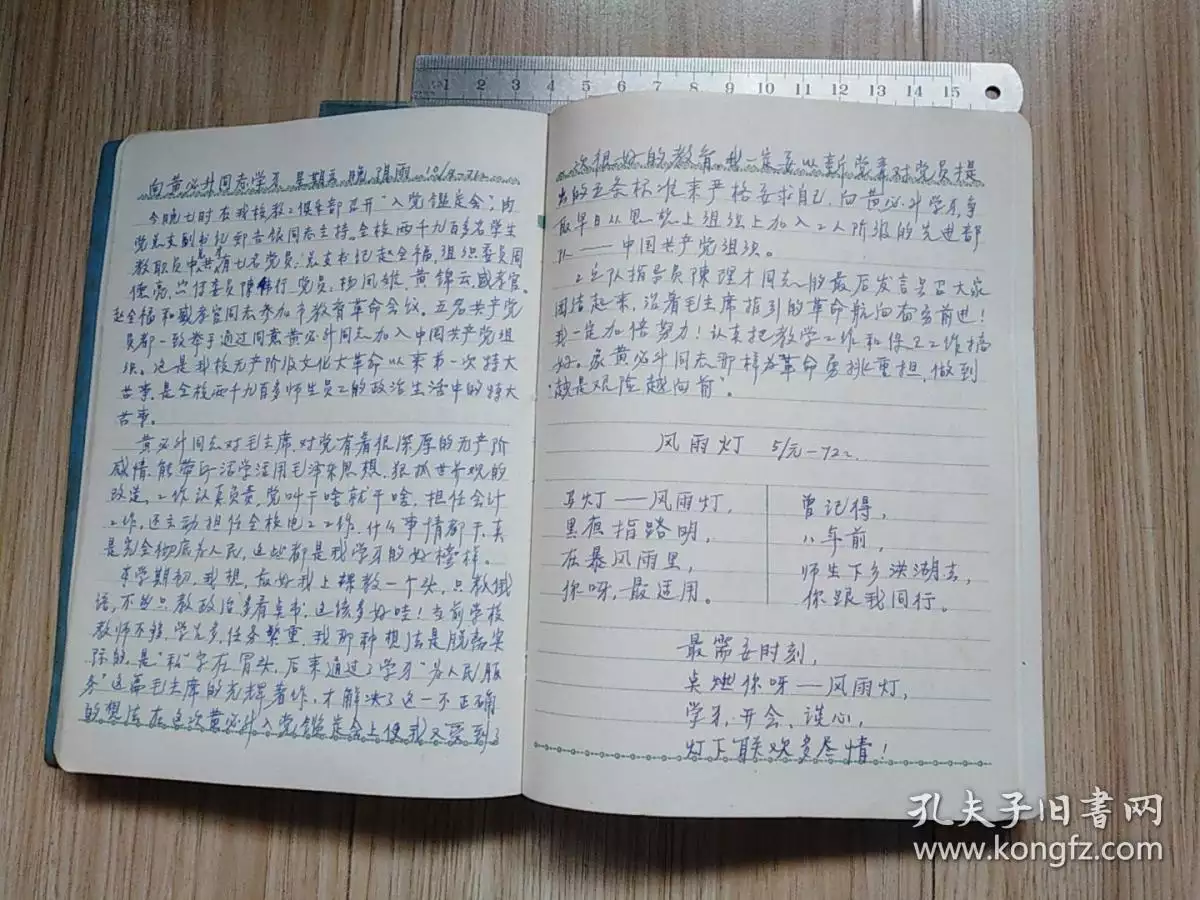 1 2 3 4 5 6 7 8 9 10 11 12 13 14 15
向黄必升同志学习 星期五 晚 阴雨
今晚七时在我校教工俱乐部召开“入党鉴定会”，由
党总支副书记 吉银同志主持。全校两千九百多名学生
教职员中共有七名党员：总支书记赵全福，组织委员周
德亮，宣传委员陈伟行，党员：杨凤雄、黄锦云、戚孝官。
赵全福和戚孝官同志参加市教育革命会议。五名共产党
员都一致举手通过同意黄必升同志加入中国共产党组
织。这是我校无产阶级文化大革命以来第一次特大
喜事，是全校两千九百多师生员工的政治生活中的特大
喜事。
黄必升同志对毛主席、对党有着很深厚的无产阶
级感情，能带头活学活用毛泽东思想，狠抓世界观的
改造，工作认真负责，党叫干啥就干啥，担任会计
工作，还主动担任全校电工工作，什么事情都干，真
是完全彻底为人民，这些都是我学习的好榜样。
本学期初，我想，最好我上课教一个头，只教俄
语，不必只教政治多看点书，这该多好哇！当前学校
教师不够，学生多，任务繁重，我那种想法是脱离实
际的，是“私”字在冒头，后来通过了学习“为人民服
务”这篇毛主席的光辉著作，才解决了这一不正确
的想法，在这次黄必升入党鉴定会上使我又受到了
一次很好的教育，我一定要以新党章对党员提
出的五条标准来严格要求自己，向黄必升学习，争
取早日从思想上组织上加入工人阶级的先进部
队——中国共产党组织。
工宣队指导员陈理才同志的最后发言号召大家
团结起来，沿着毛主席指引的革命航向奋勇前进！
我一定加倍努力！认真把教学工作和保卫工作搞
好。象黄必升同志那样为革命勇挑重担，做到
“越是艰险越向前”。
风雨灯 5/元-72
马灯——风雨灯，
黑夜指路明，
在暴风雨里，
你呀，最适用。
曾记得，
八年前，
师生下乡洪湖去，
你跟我同行。
最需要时刻，
点燃你呀——风雨灯，
学习、开会、谈心，
灯下联欢多尽情！
孔夫子旧书网
www.kongfz.com